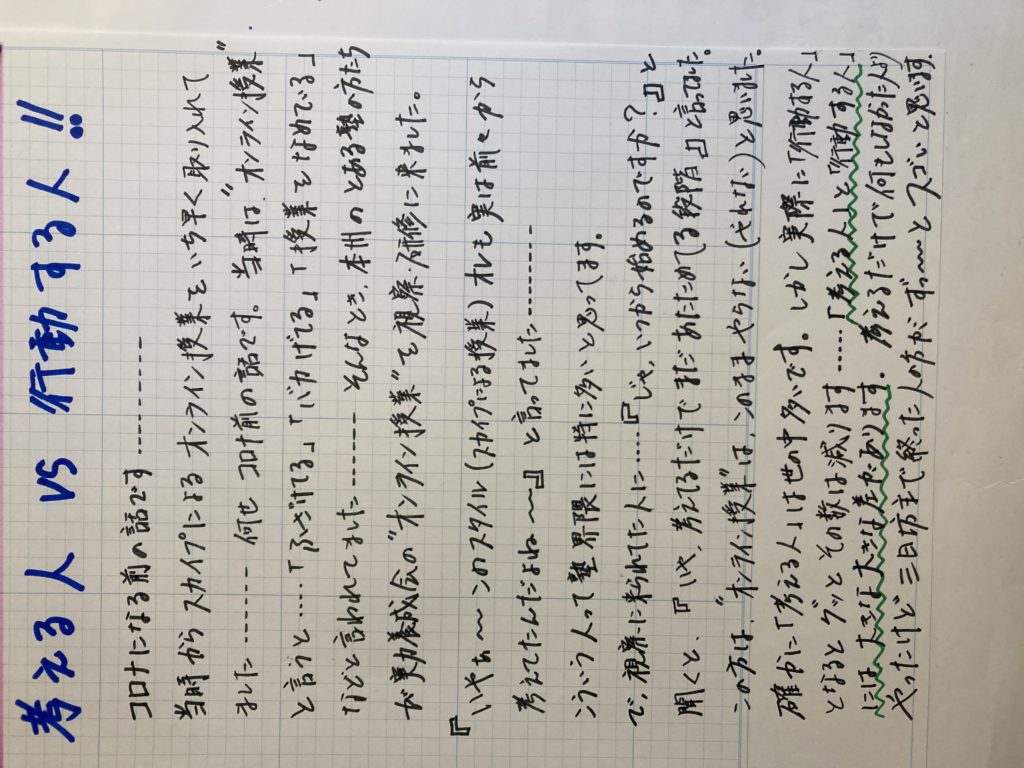 考える人 VS 行動する人!!
コロナになる前の話です…………
当時からスカイプによるオンライン授業をいち早く取り入れて
ました……… 何せコロナ前の話です。当時は、"オンライン授業"
と言うと……「ふざけてる」「バカげてる」「授業をなめでいる」
などと言われてました……… そんなとき、本州のとある塾の方たち
が実力養成会の"オンライン授業"を視察・研修に来ました。
『いやぁ〜〜このスタイル(スカイプによる授業)オレも実は前々から
考えてたんだよね〜〜』と言ってました…………
こういう人って塾界隈には特に多いと思ってます。
で、視察に来られてた人に……『じゃ、いつから始めるのですか?』と
聞くと、『いや、考えてるだけでまだあたためてる段階』と言ってました。
この方は、"オンライン授業"は、このままやらない(やれない)と思いました。
確かに「考える人」は世の中多いです。しかし実際に「行動する人」
となるとグッとその数は減ります……「考える人」と「行動する人」
には大きな大きな差があります。考えるだけで何もしなかった人より
やったけど三日坊主で終った人の方がずっ〜〜とスゴいと思います。